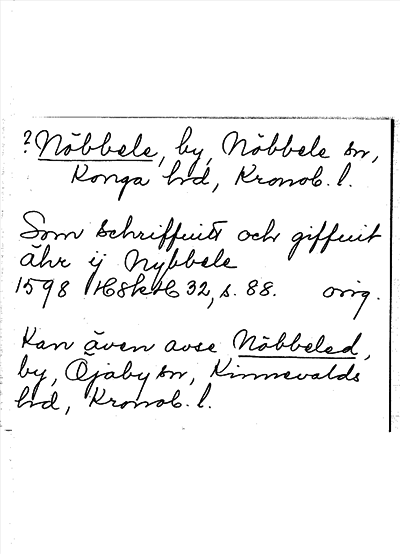 ? Nöbbele, by, Nöbbele sn,
Konga hd, Kronob. l.
Som schriffuitt och giffuit
ähr ij Nybbele
1598 HSkH 32, s. 88. orig.
Kan även avse Nöbbeled,
by, Öjaby sn, Kinnevalds
hd, Kronob. l.